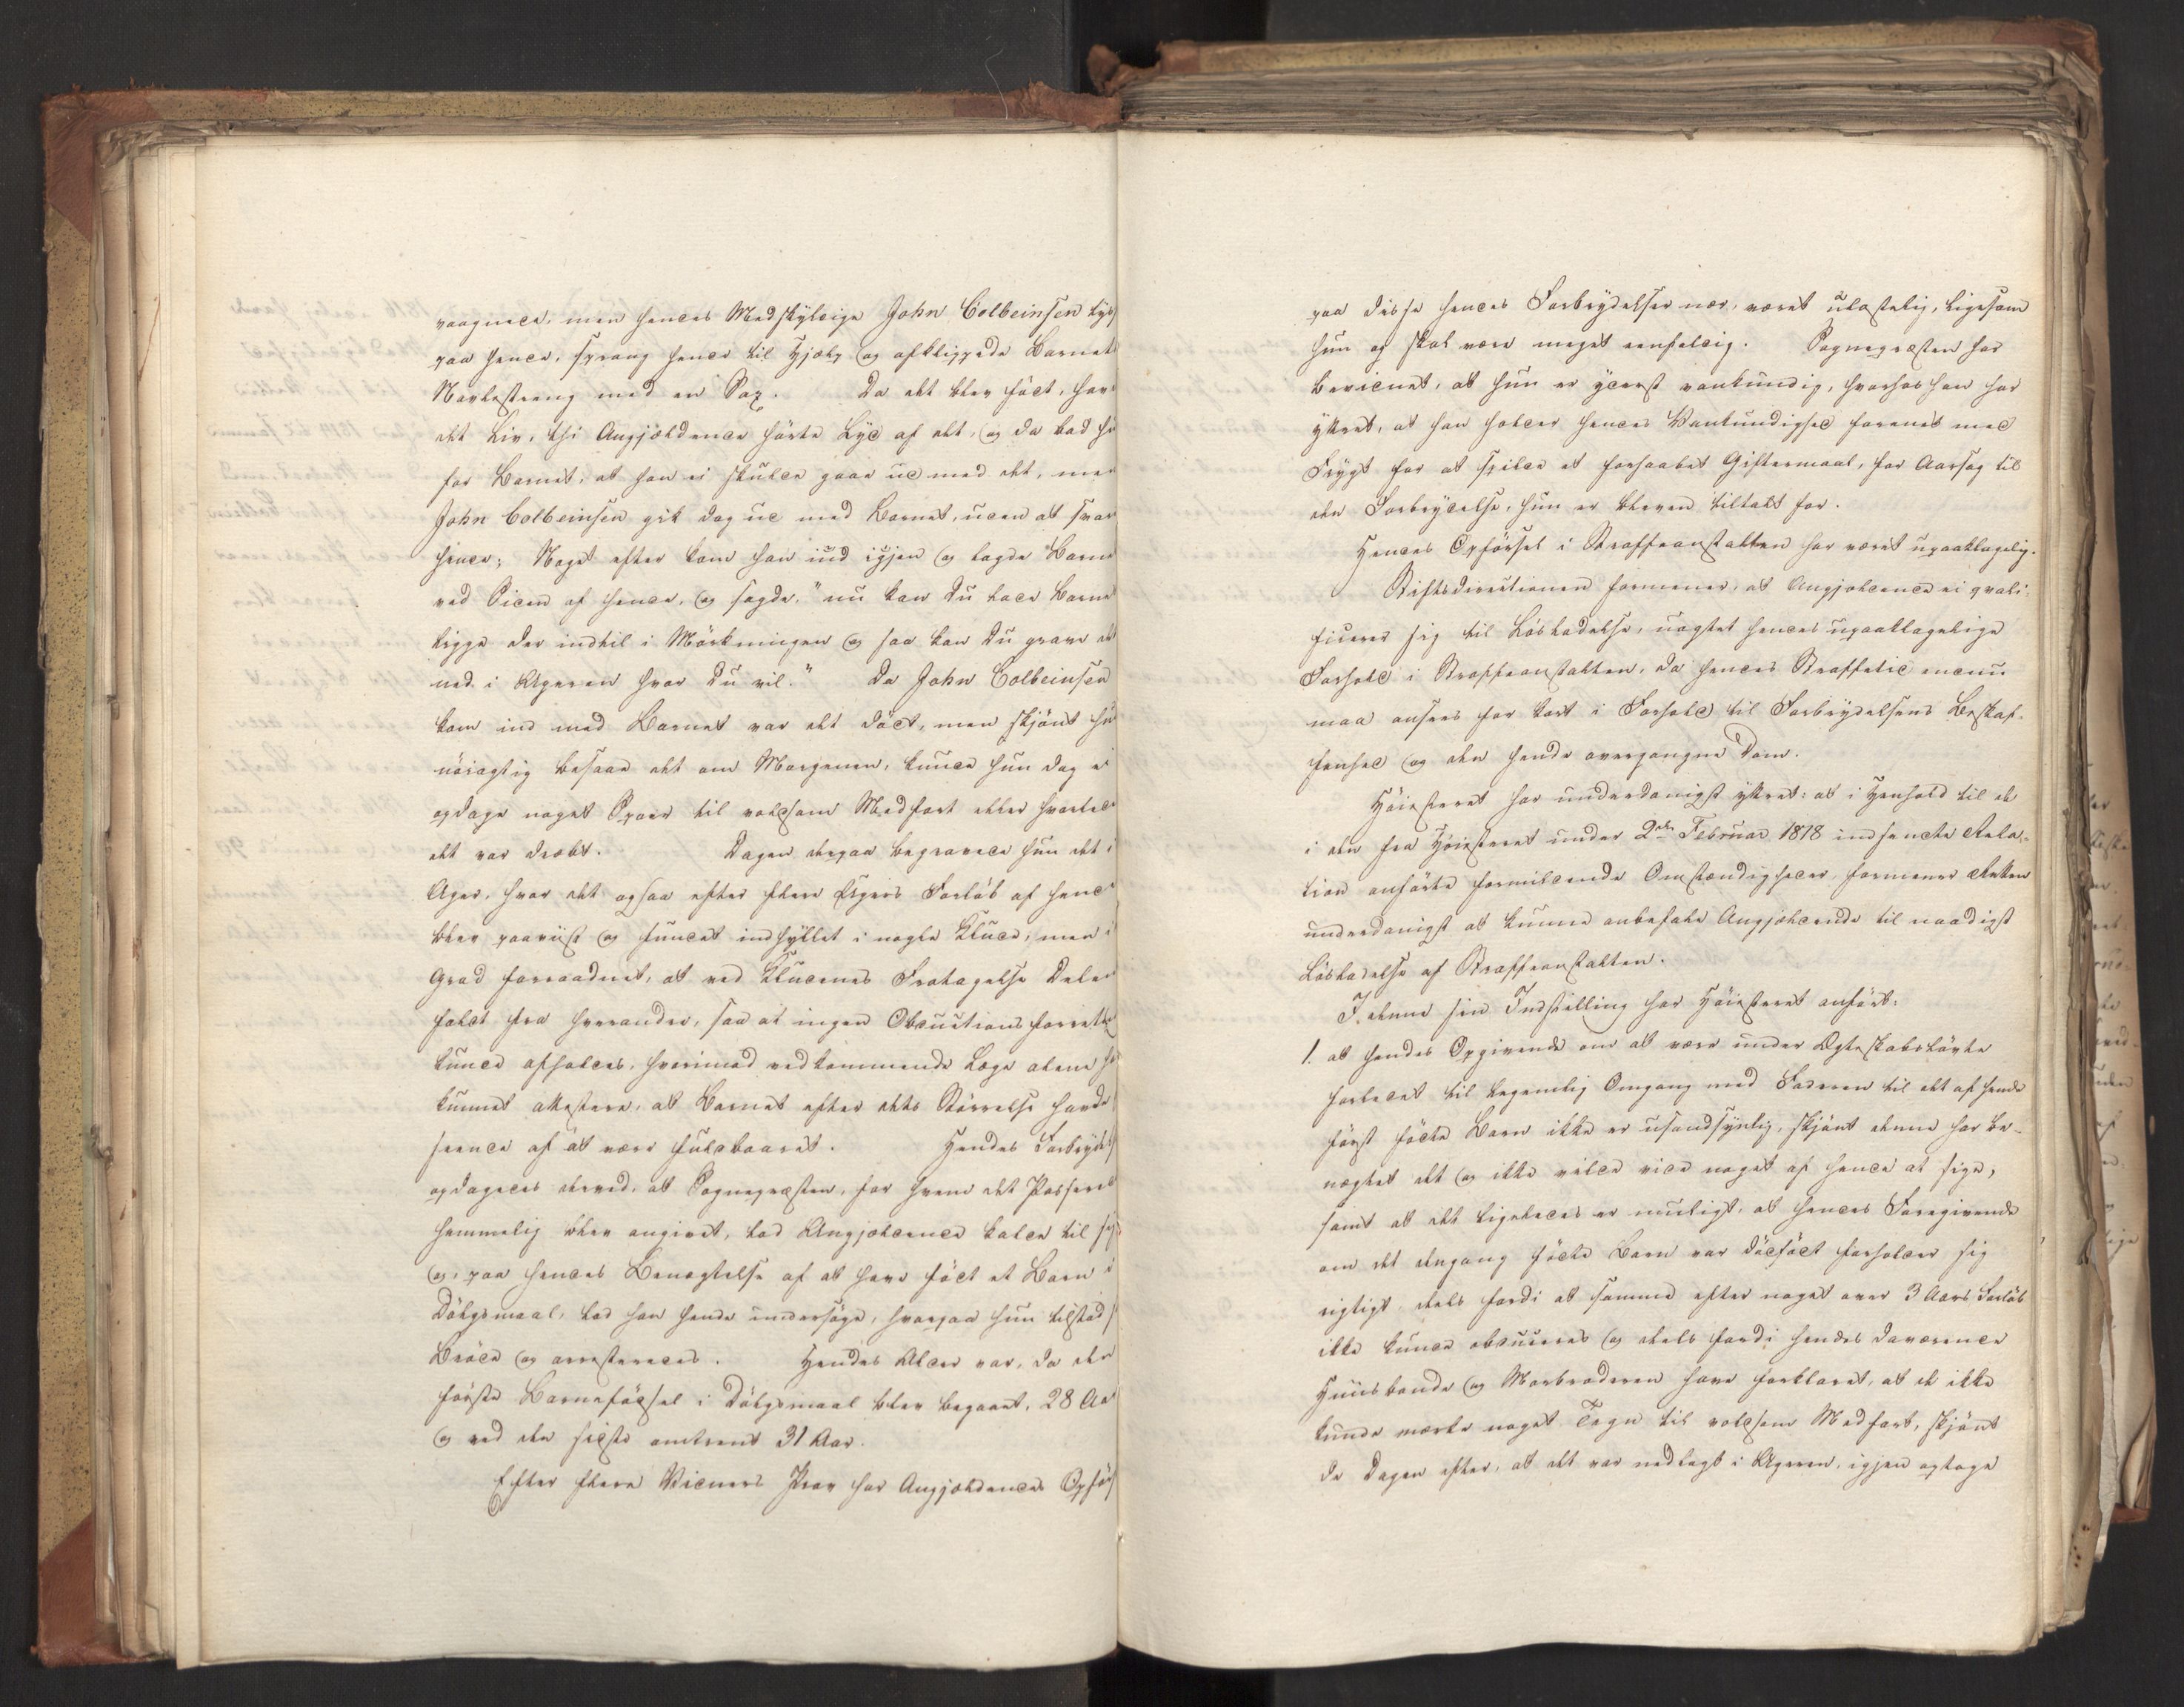 vaagnede, men hendes Medskyldige John Colbeinsen
paa hende, sprang hende til Hjælp og afklippede Barnets
Navlestreng med en Sax. Da det blev födt, hav
det Liv, thi Angjældende hörte Lyd af det, og da bad
for Barnet, at han ei skulde gaae ud med det, men
John Colbeinsen gik dog ud med Barnet, uden at svar
hende; Noget efter kom han ind igjen og lagde Barne
ved Siden af hende, og sagde, "nu kan Du lade Barne
ligge der indtil i Mörkningen og saa kan Du grave det
ned i Ageren hvor Du vil." Da John Colbeinsen
kom ind med Barnet var det dödt, men skjönt
nöiagtig besaae det om Morgenen, kunde hun dog ei
opdage noget Spoer til voldsom Medfart eller hvorled
det var dræbt. Dagen derpaa begravede hun det i
Ager, hvor det ogsaa efter flere Ugers Forlöb af hende
blev paaviist og fundet indhyllet i nogle Klude, men i
Grad forraadnet, at ved Kludenes Fratagelse Delene
faldt fra hverandre, saa at ingen Obductionsforretn
kunde afholdes, hvorimod vedkommende Læge alene
kunnet attestere, at Barnet efter dets Störrelse havde
seende af at være fuldbaaret. Hendes Forbrydels
opdagedes derved, at Sognepræsten, for hvem det Passerede
hemmelig blev angivet, lod Angjældende kalde til sig
og, paa hendes Benægtelse af at have födt et Barn i
Dölgsmaal, lod han hende undersöge, hvorpaa hun tilstod
Bröde og arresteredes. Hendes Alder var, da den
förste Barnefödsel i Dölgsmaal blev begaaet, 28 Aar
og ved den sidste omtrent 31 Aar.
Efter flere Vidners Prov har Angjældendes Opför
paa disse hendes Forbrydelser nær, været ulastelig, ligesom
hun og skal være meget eenfoldig. Sognepræsten har
bevidnet, at hun er yderst vankundig, hvorhos han har
yttret, at han holder hendes Vankundighed forenet med
Frygt for at spilde et forhaabet Giftermaal, for Aarsag til
den Forbrydelse, hun er bleven tiltalt for.
Hendes Opförsel i Straffeanstalten har været upaaklagelig.
Stiftsdirectionen formener, at Angjældende ei qvali-
ficerer sig til Lösladelse, uagtet hendes upaaklagelige
Forhold i Straffeanstalten, da hendes Straffetid endnu
maa ansees for kort i Forhold til Forbrydelsens Beskaf-
fenhed og den hende overgangne Dom.
Höiesteret har underdanigst yttret: at i Henhold til de
i den fra Höiesteret under 2den Februar 1818 indsendte Rela-
tion anförte formildende Omstændigheder, formener Retten
underdanigst at kunne anbefale Angjældende til naadigst
Lösladelse af Straffeanstalten.
I denne sin Indstilling har Höiesteret anfört:
1. at hendes Opgivende om at være under Ægteskabslövte
forledet til legemlig Omgang med Faderen til det af hende
först födte Barn ikke er usandsynlig, skjönt denne har be-
nægtet det og ikke vilde vide noget af hende at sige,
samt at det ligeledes er mueligt, at hendes Foregivende
om det dengang födte Barn var dödfödt forholder sig
rigtigt, dels fordi at samme efter noget over 3 Aars Forlöb
ikke kunde obduceres og dels fordi hendes daværende
Huusbonde og Morbroderen have forklaret, at de ikke
kunde mærke noget Tegn til voldsom Medfart, skjönt
de Dagen efter, at det var nedlagt i Ageren, igjen optoge